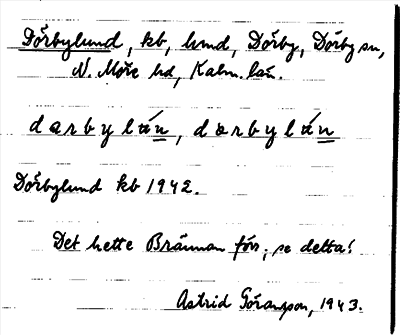 Dörbylund, kb, lmd, Dörby, Dörby sn,
N. Möre hd, Kalm. län.
dœrbylún, dœrbylún
Dörbylund kb 1942.
Det hette Brännan förr, se detta!
Astrid Göransson, 1943.